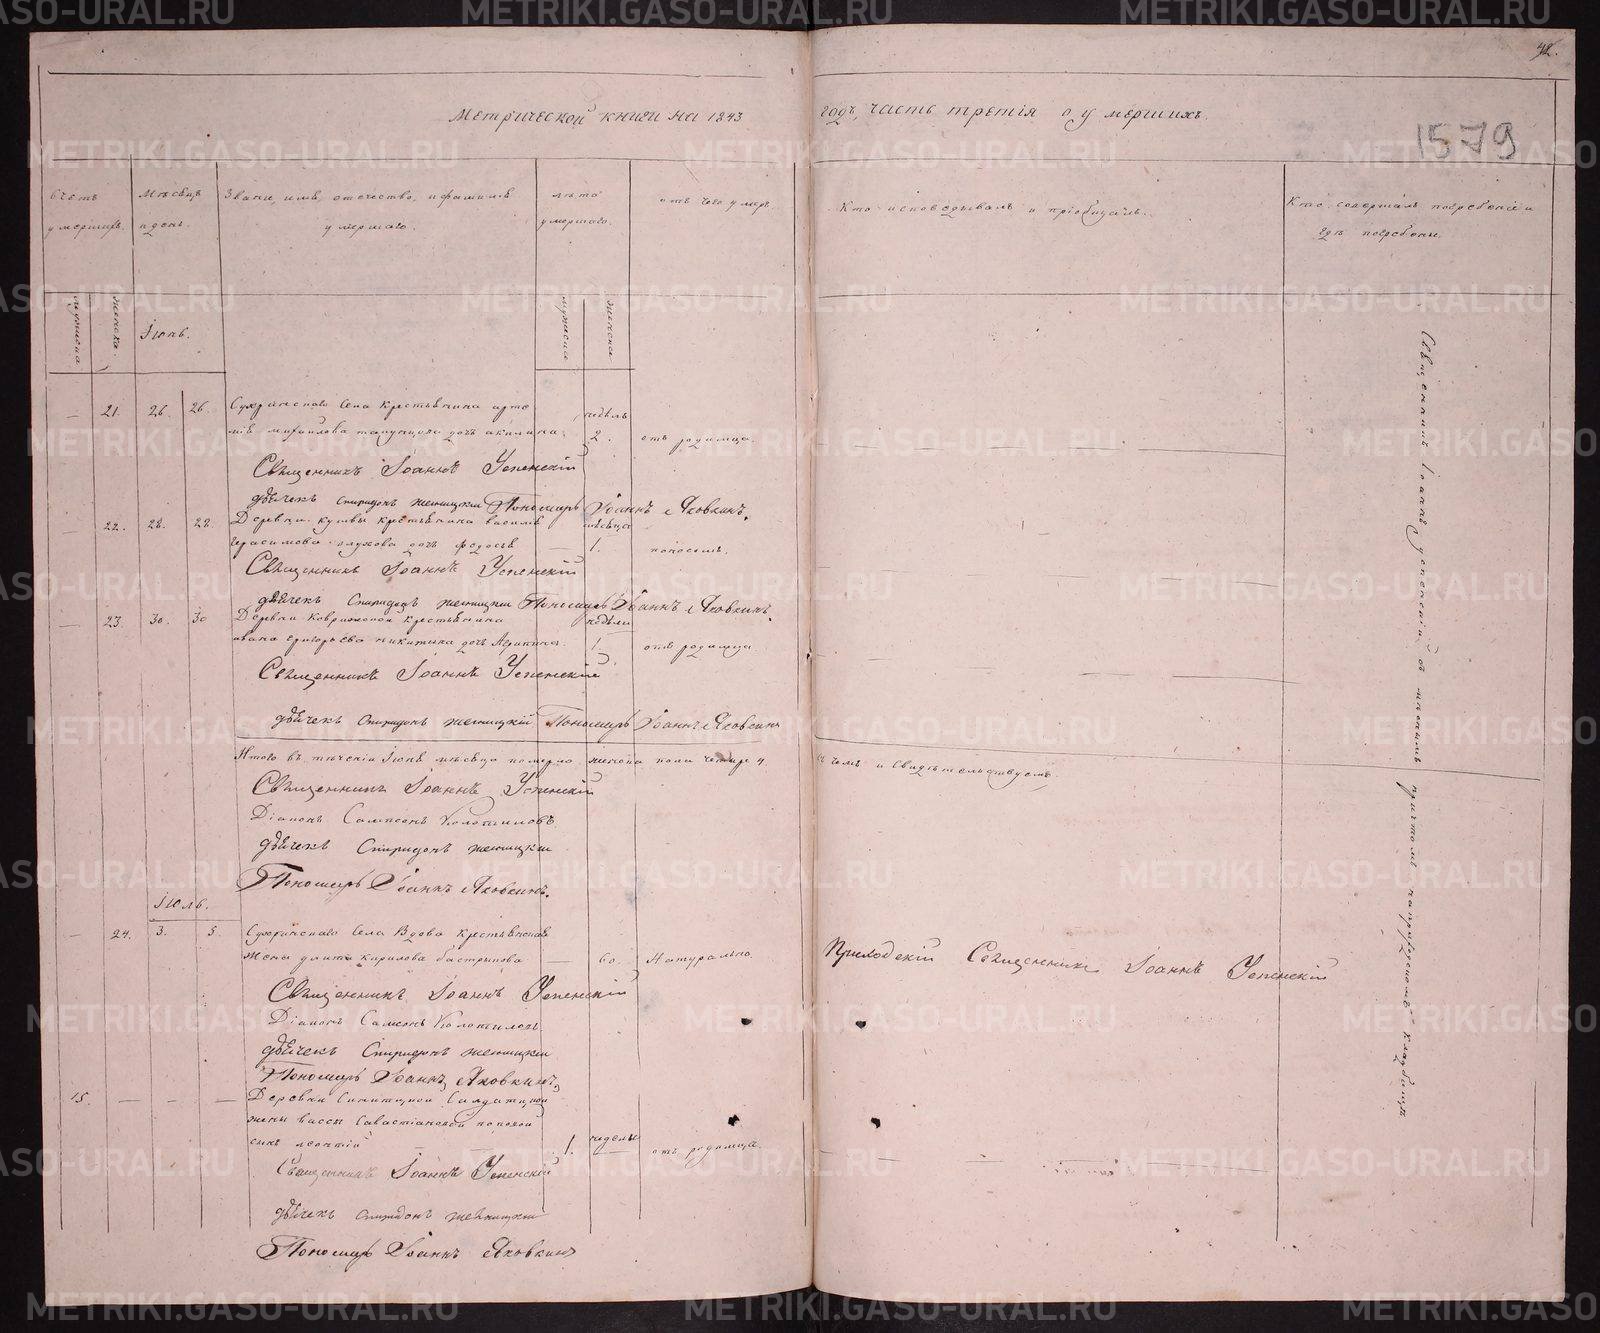 42.
Метрической книги на 1843 годъ, часть третія о умершихъ.
1579
Счетъ умершихъ.
Мѣсяцъ и день.
Званіе, имя, отчество, и фамилія умершаго.
лѣта умершаго.
отъ чего умеръ.
Кто исповѣдывалъ и пріобщалъ.
Кто совершалъ погребеніе и гдѣ погребены.
мужска
женска.
Іюнь.
мужска
женска
— 21. 26. 26. Сугоринскаго Села Крестьянина арте
мія михайлова дочь акилина. недѣль 2. отъ родимца.
Священникъ Іоаннъ Успенскій
дьячекъ Спиридонъ Пономарь Іоаннъ Яковкинъ.
— 22. 28. 28. Деревни крестьянина василья
герасимова глухова дочь федосья — мѣсяца 1. поносомъ.
Священникъ Іоаннъ Успенскій
дьячекъ Спиридонъ Пономарь Іоаннъ Яковкинъ.
— 23. 30. 30 Деревни крестьянина
ивана григорьева никитина дочь Агрипина. недѣли 1. отъ родимца
Священникъ Іоаннъ Успенскій
дьячекъ Спиридонъ Пономарь Іоаннъ Яковкинъ
Итого въ теченіи Іюня мѣсяца померло женска пола четыре 4.
въ чемъ и Свидѣтельствуемъ
Священникъ Іоаннъ Успенскій
Діаконъ Сампсонъ
дьячекъ Спиридонъ
Пономарь Іоаннъ Яковкинъ.
Іюль.
— 24. 3. 5. Села Вдова крестьянская
Жена улита кирилова бастрыкова — 60. Натурально.
Приходскій Священникъ Іоаннъ Успенскій
Священникъ Іоаннъ Успенскій
Діаконъ
дьячекъ Спиридонъ
Пономарь Іоаннъ Яковкинъ.
15. — — — Деревни Солдатской
жены вассы Савастіановой поповой
сынъ леонтій 1. недели отъ родимца.
Священникъ Іоаннъ Успенскій
дьячекъ Спиридонъ
Пономарь Іоаннъ Яковкинъ
Священникъ Іоаннъ успенскій съ причтомъ на приходскомъ кладбищѣ
METRIKI.GASO-URAL.RU